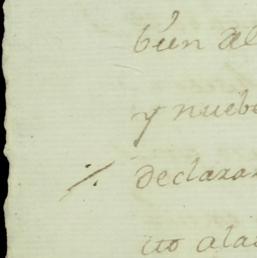 bien al
y nueb
/. declara
to ala